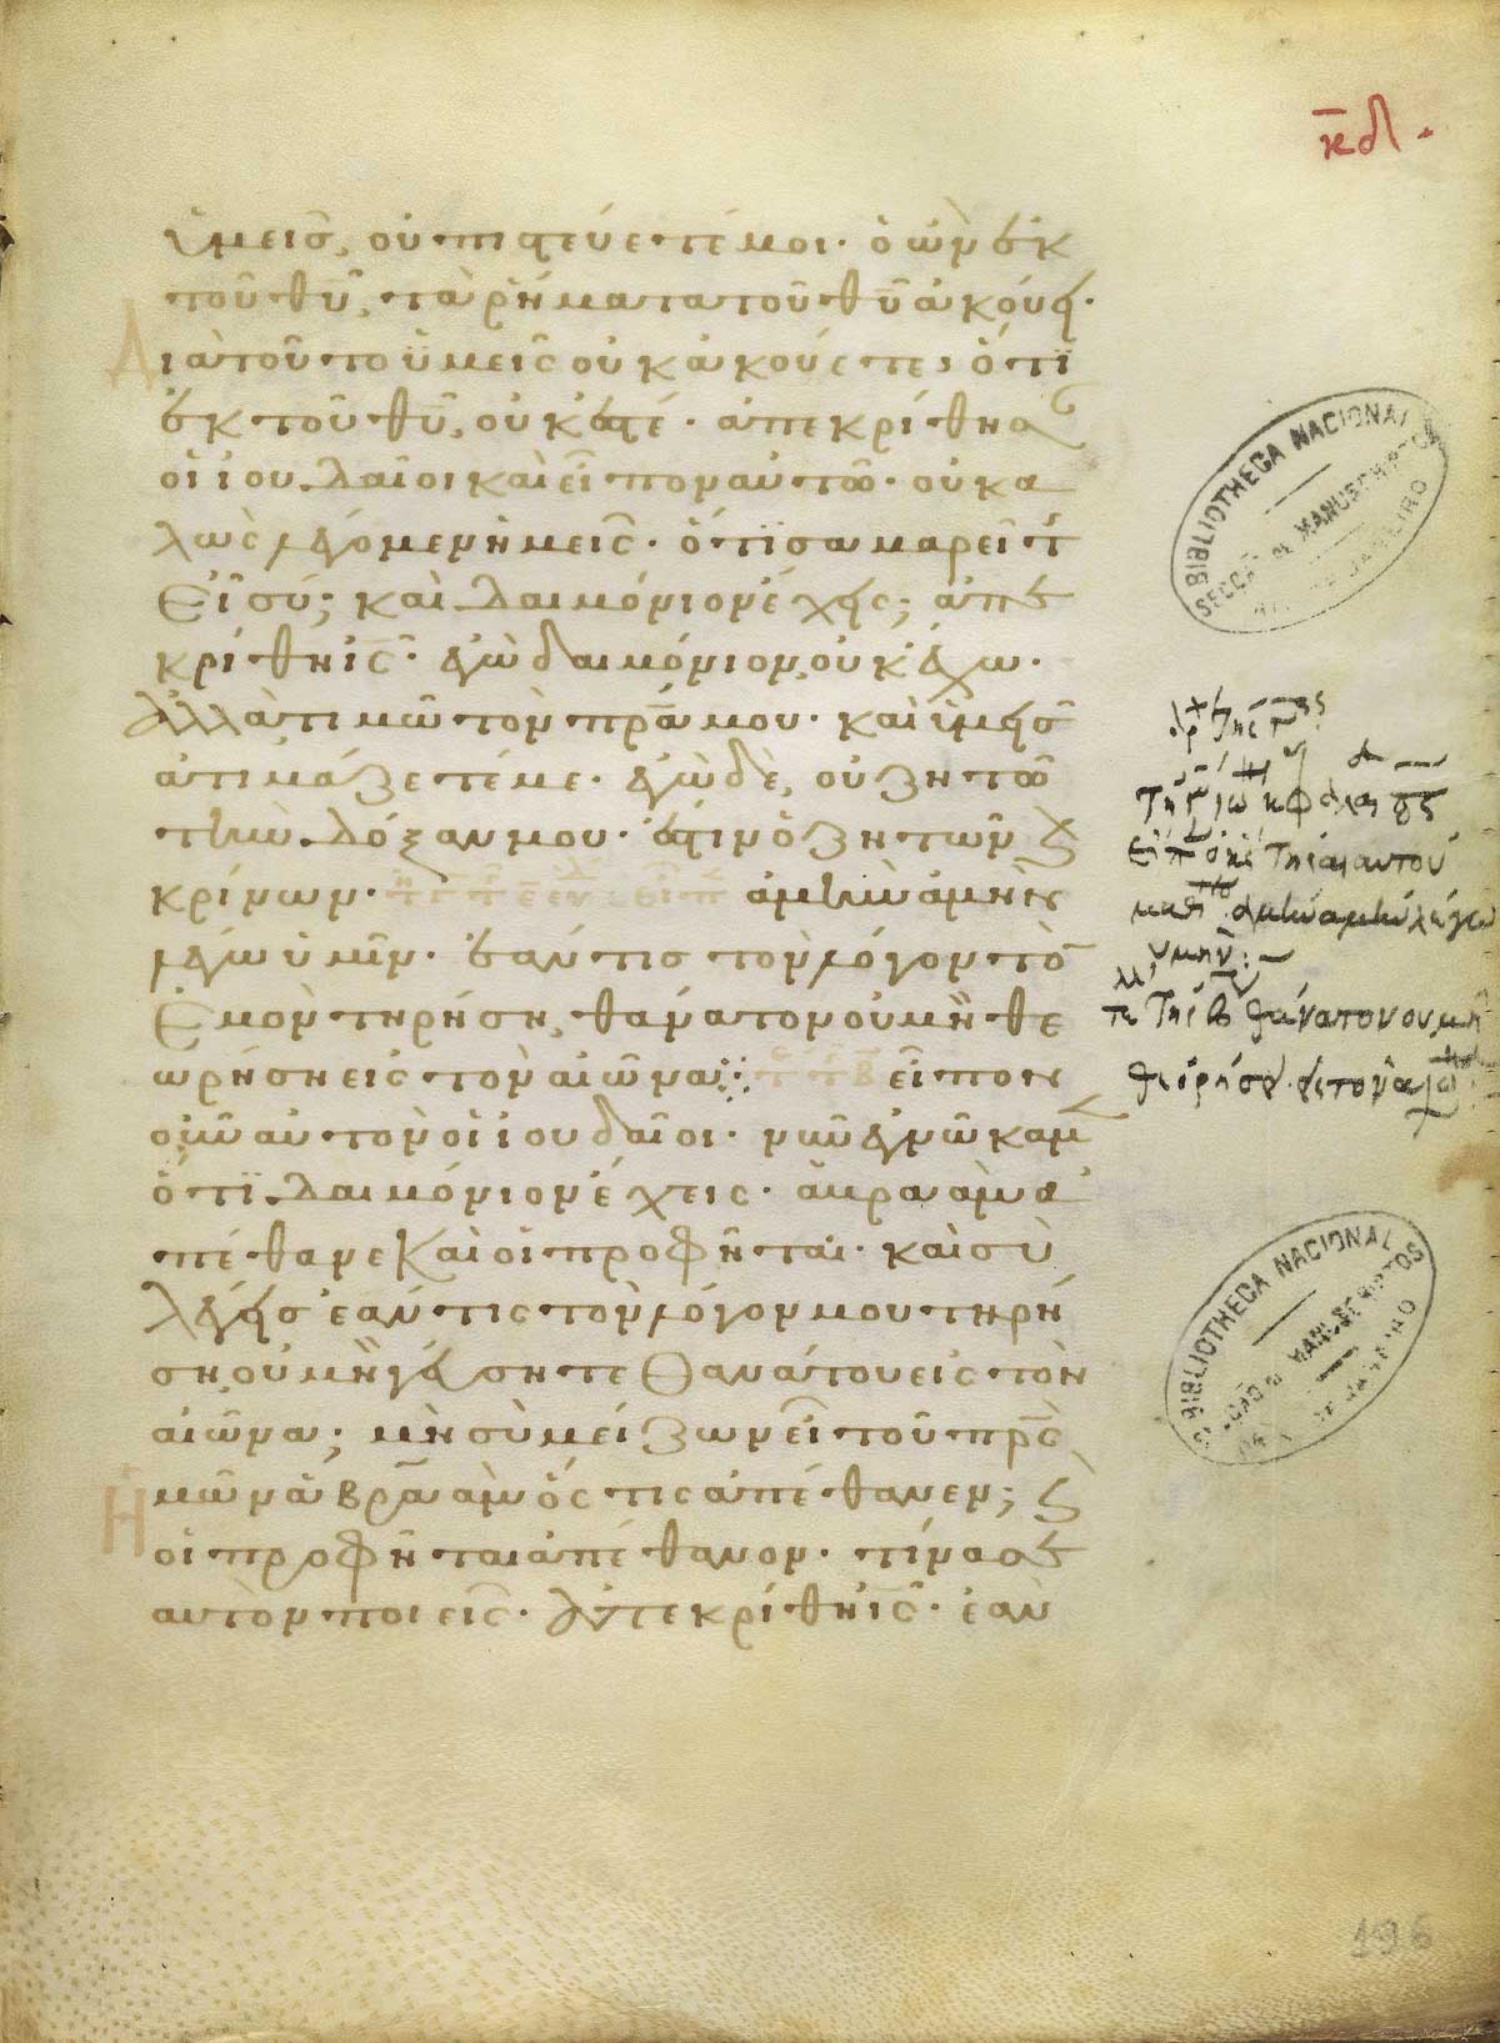 κδ.
ὑμεῖσ, οὐ πιστεύετέ μοι· ὁ ὢν ἐκ
τοῦ θ̅υ̅, τὰ ῥήματα τοῦ θ̅υ̅ ἀκούει·
Διὰ τοῦτο ὑμεῖς οὐκ ἀκούετε, ὅτι
ἐκ τοῦ θ̅υ̅, οὐκ ἐστέ· ἀπεκρίθησα
οἱ ἰουδαῖοι καὶ εἶπον αὐτῶ· οὐ κα
λῶς λέγομεν ἡμεῖς· ὅτι σαμαρείτ
εἶ σύ; καὶ δαιμόνιον ἔχεις; ἀπε
κρίθη ι̅ς̅· ἐγὼ δαιμόνιον, οὐκ ἔχω·
ἀλλὰ τιμῶ τὸν π̅ρ̅α̅ μου· καὶ ὑμεῖσ
ἀτιμάζετέ με· ἐγὼ δὲ, οὐ ζητῶ
τὴν δόξαν μου· ἔστιν ὁ ζητῶν ϗ
κρίνων· ἀμὴν ἀμὴν
λέγω ὑμῖν· ἐάν τισ τὸν λόγον τὸ
ἐμὸν τηρήση, θάνατον οὐ μὴ θε
ωρήση εἰς τὸν αἰῶνα: εἶπον
οὖν αὐτὸν οἱ ἰουδαῖοι· νῦν ἐγνώκαμ
ὅτι δαιμόνιον ἔχεις· ἀβραὰμ ἀ
πέθανε καὶ οἱ προφῆται· καὶ σὺ
λέγεισ ἐάν τις τὸν λόγον μου τηρή
ση, οὐ μὴ γεύσητε θανάτου εἰς τὸν
αἰῶνα; μὴ σὺ μείζων εἶ τοῦ π̅ρ̅ς̅ ἡ
μῶν ἀβραὰμ ὅς τις ἀπέθανεν; ϗ
οἱ προφῆται ἀπέθανον· τίνα σε
αυτὸν ποιεῖς· ἀπεκρίθη ι̅ς̅· ἐὰν
ἀμὴν ἀμὴν λέγω
υμῖν:
θάνατον ου μὴ
θεορήσει εἰς τον αἰῶ
BIBLIOTHECA NACIONAL
SECÇÃO de MANUSCRIPTOS
RIO DE JANEIRO
BIBLIOTHECA NACIONAL
SECÇÃO de MANUSCRIPTOS
RIO DE JANEIRO
196